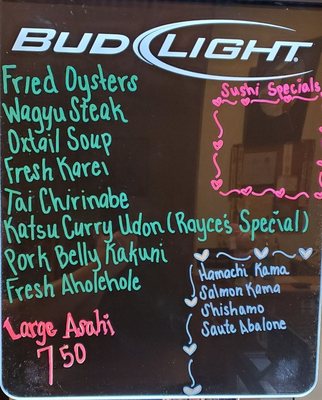 BUD LIGHT
Fried Oysters
Wagyu Steak
Oxtail Soup
Fresh Karei
Tai Chirinabe
Katsu Curry Udon (Rayce's Special)
Pork Belly Kakuni
Fresh Aholehole
Large Asahi
7 50
Sushi Specials
Hamachi Kama
Salmon Kama
Shishamo
Saute Abalone